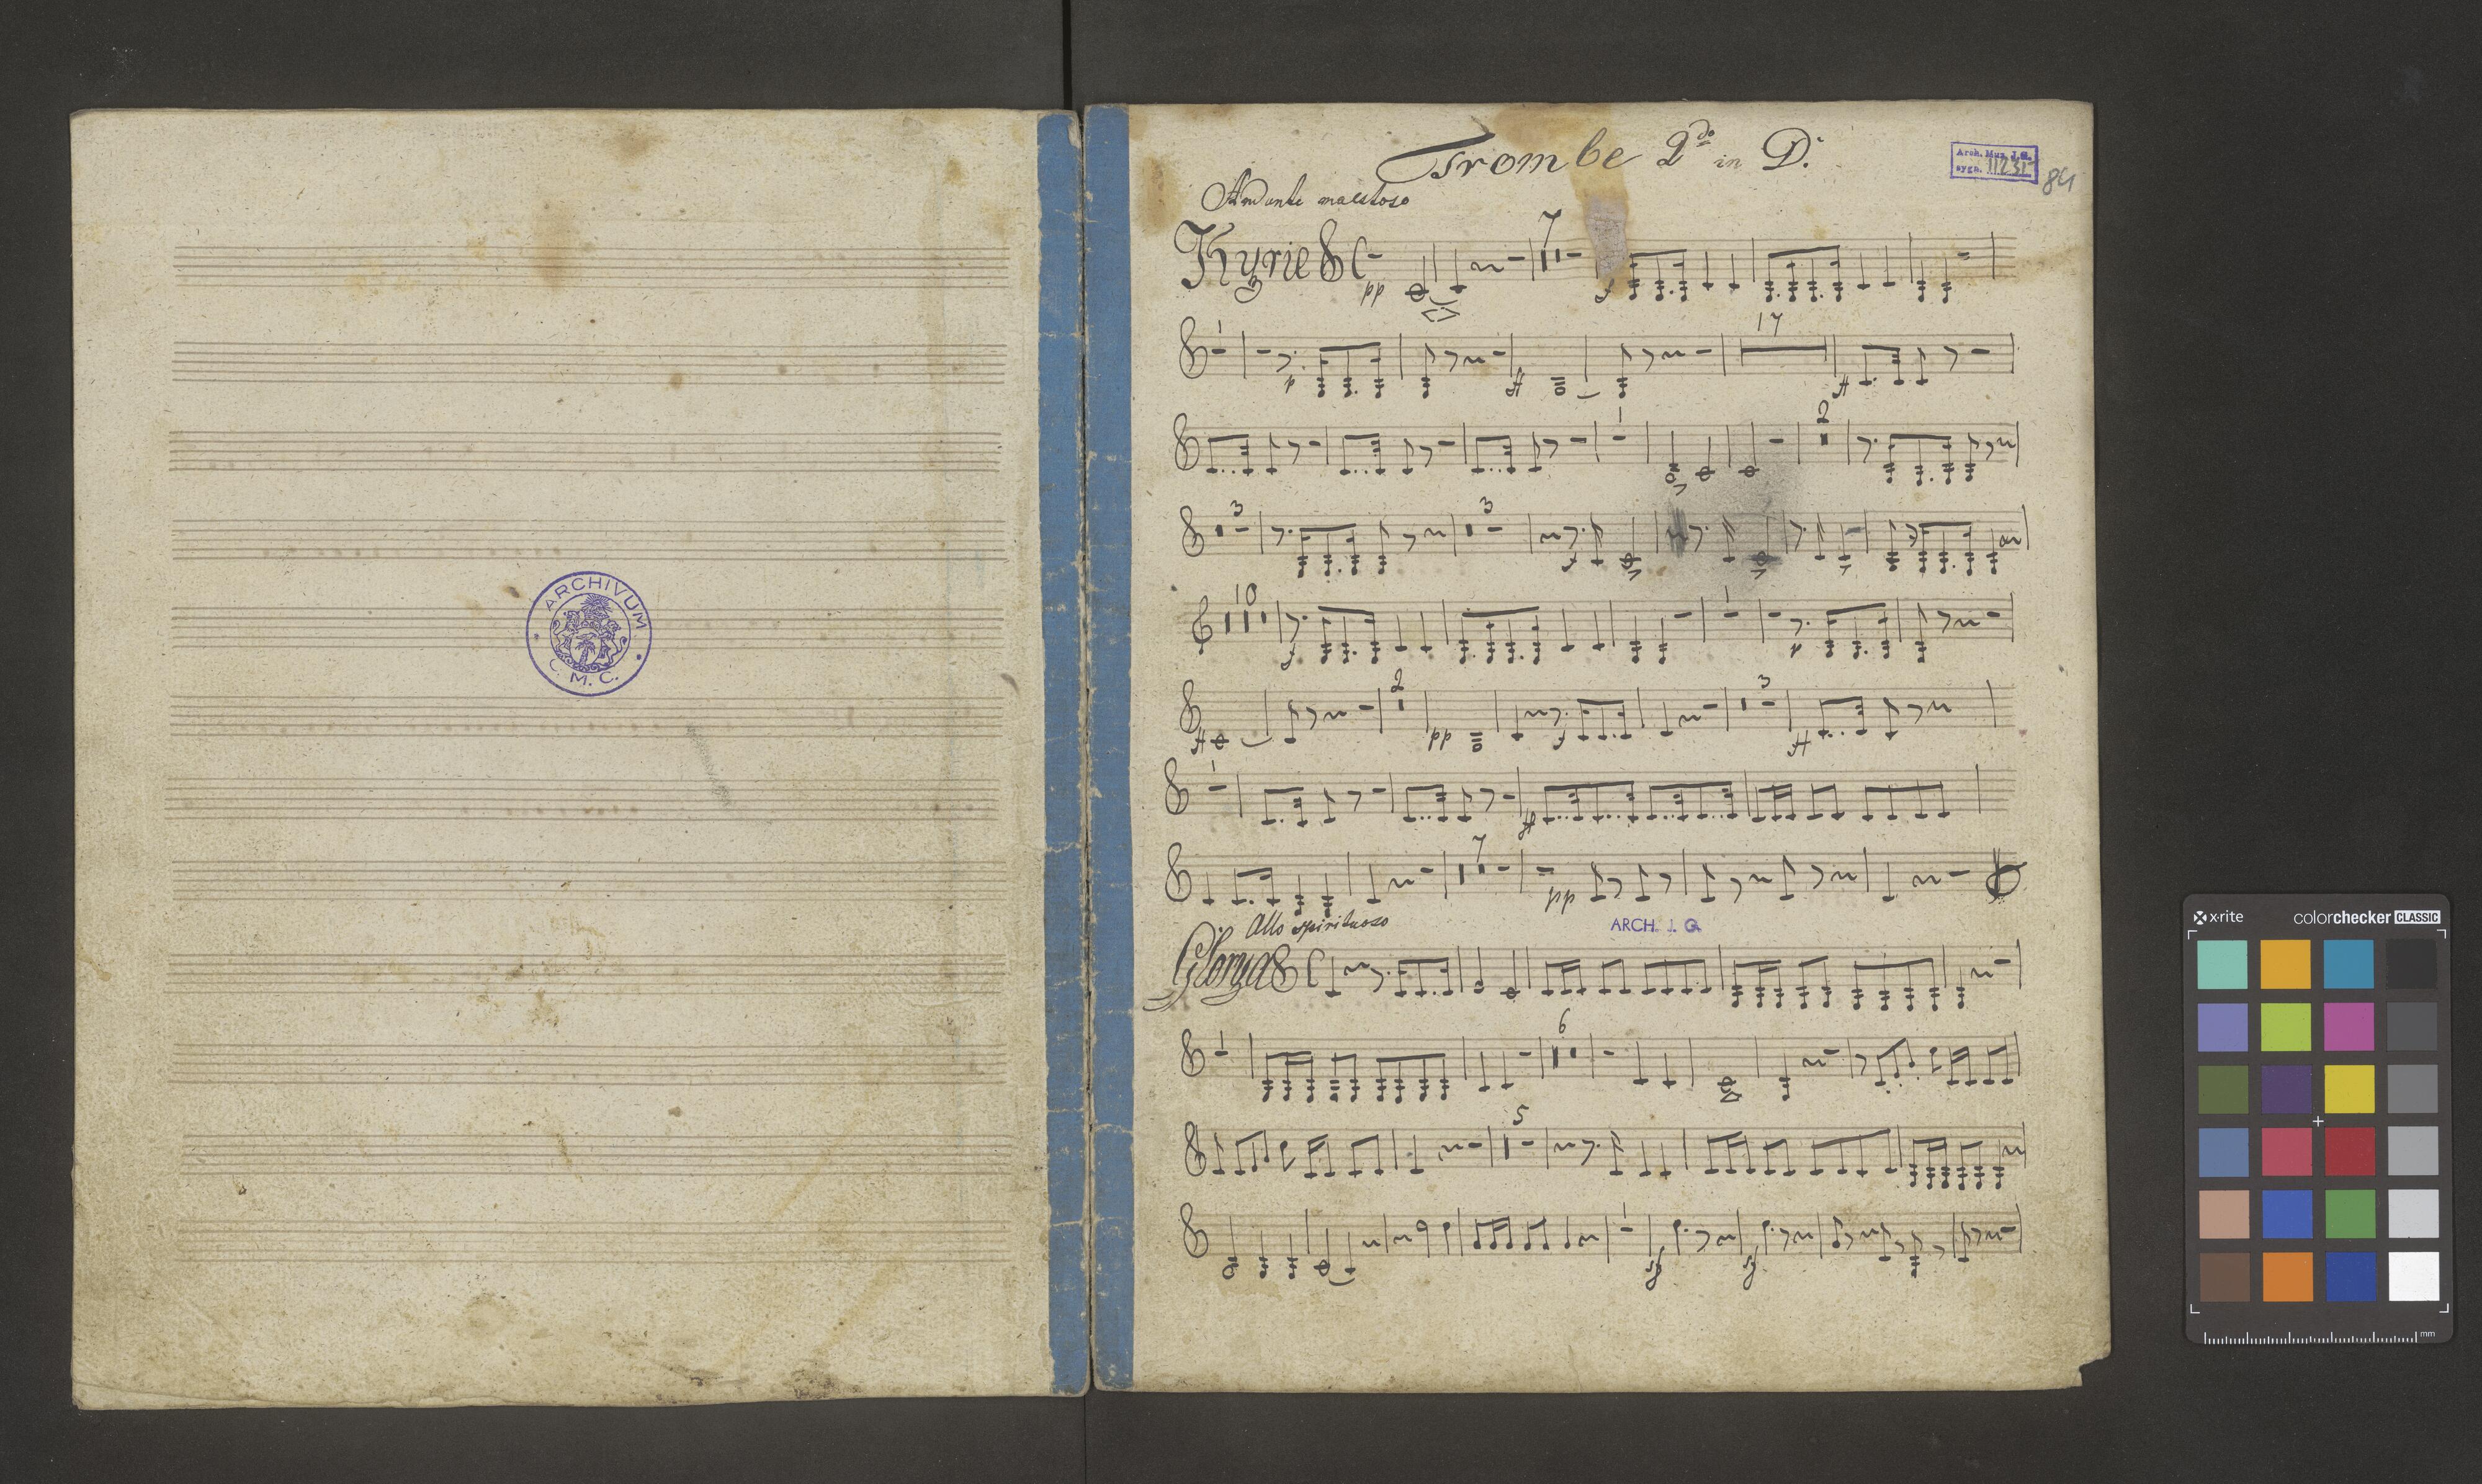 ARCHIVUM
C. M. C.
Trombe 2do in D.
Arch. Muz. J.G.
sygn. 11231
84
Andante maestoso
7
Kyrie
pp
f
1
17
p
ff
1
2
3
3
f
10
1
f
p
2
3
ff
pp
f
ff
1
ff
7
pp
Allo spirituoso
ARCH. J. G.
Glorya
1
6
5
1
x-rite colorchecker CLASSIC
mm